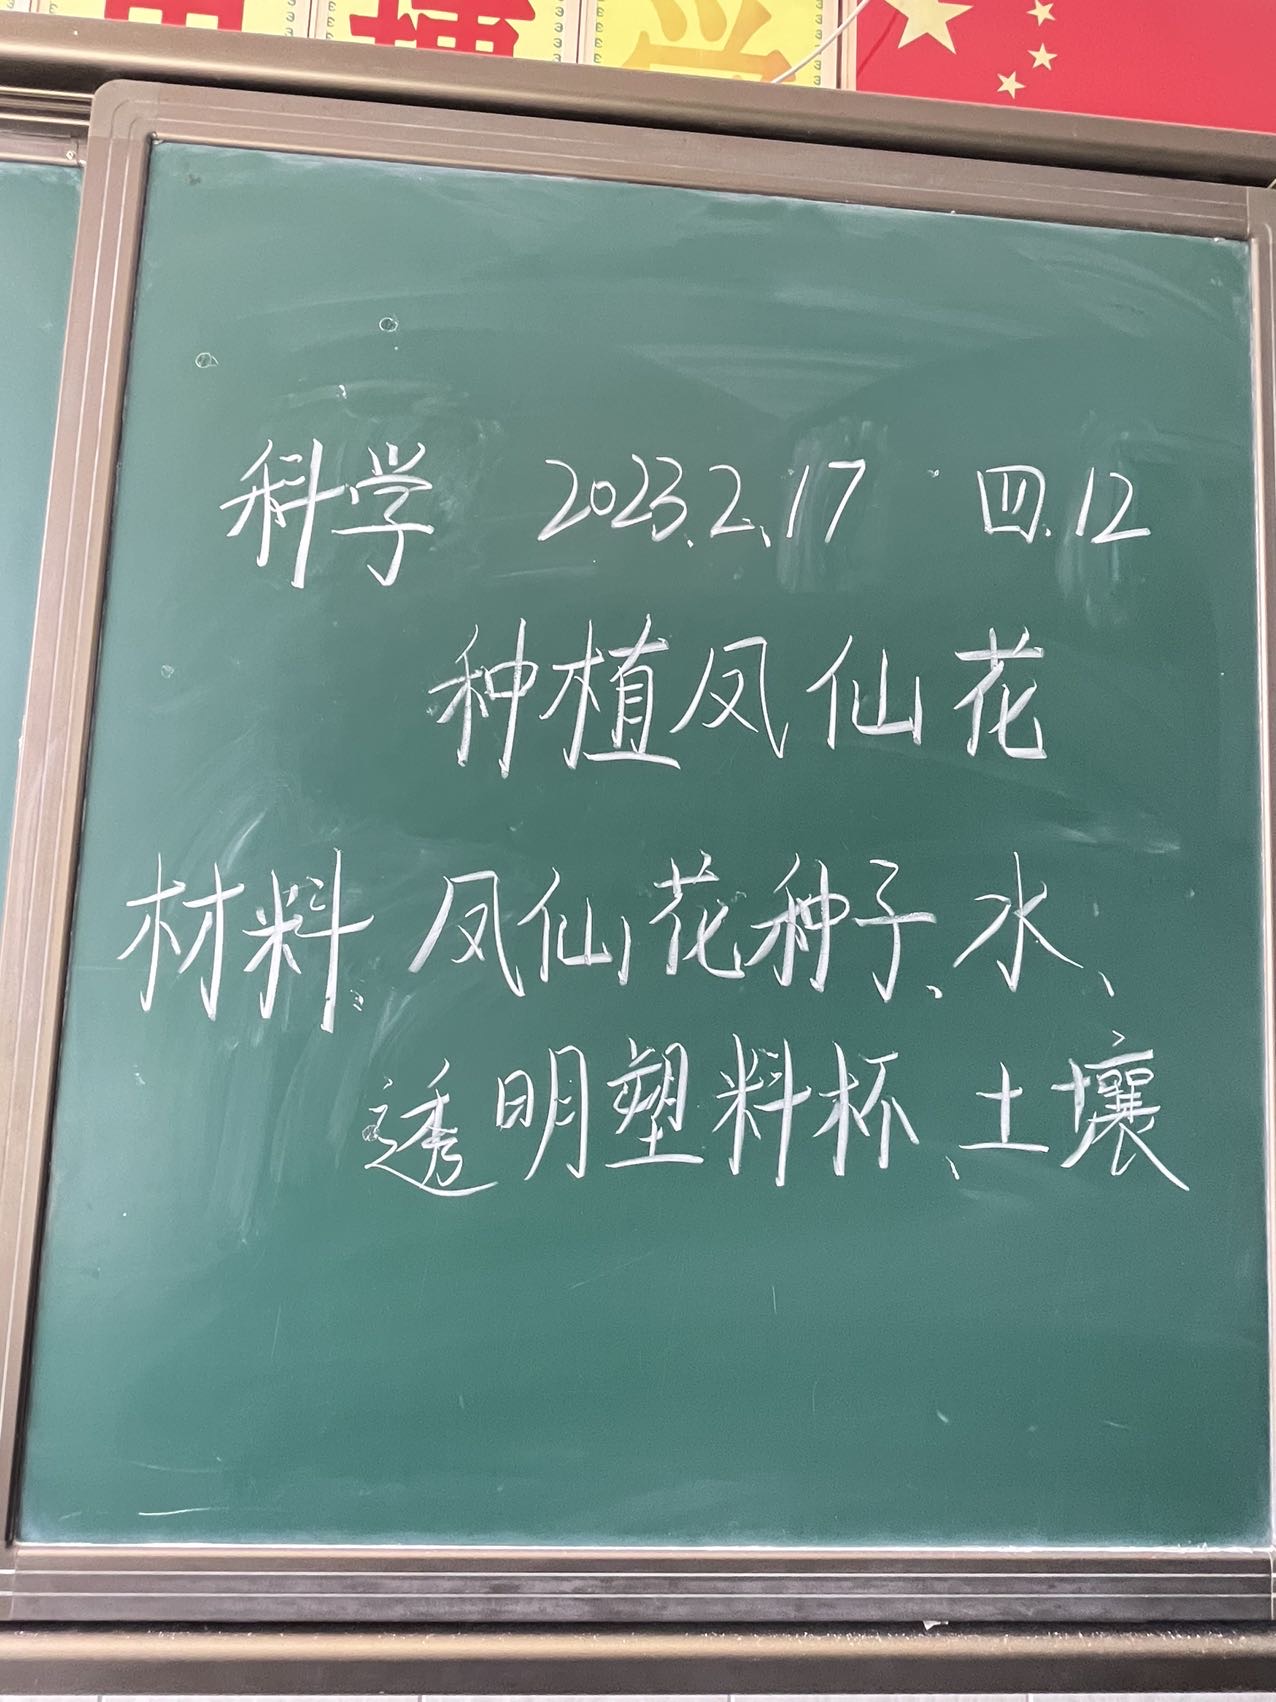 科学 2023.2.17 四.12
种植凤仙花
材料:凤仙花种子、水、
透明塑料杯、土壤